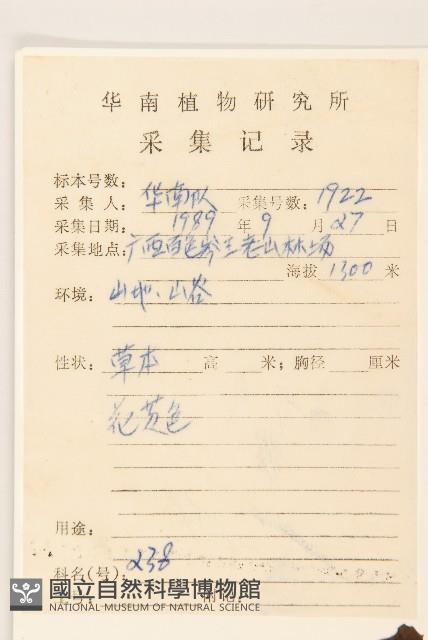 华南植物研究所
采集记录
标本号数：
采集人：华南队 采集号数：1922
采集日期：1989年9月27日
采集地点：广西百色岑王老山林场
海拔 1300 米
环境：山地、山谷
性状：草本 高 米；胸径 厘米
花黄色
用途：
科名(号)：238
國立自然科學博物館
NATIONAL MUSEUM OF NATURAL SCIENCE